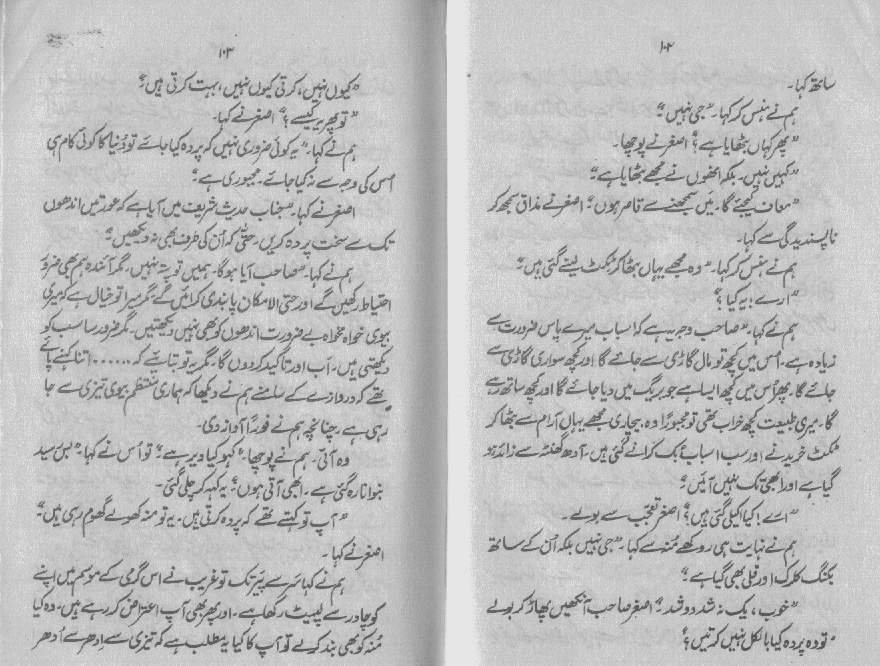 ۱۰۲
ساتھ کہا۔
ہم نے ہنس کر کہا۔ "جی نہیں"۔
"پھر کہاں بٹھایا ہے؟" اصغر نے پوچھا۔
"کہیں نہیں۔ بلکہ انھوں نے مجھے بٹھایا ہے"۔
"معاف کیجئے گا۔ میں سمجھنے سے قاصر ہوں"۔ اصغر نے مذاق سمجھ کر
ناپسندیدگی سے کہا۔
ہم نے ہنس کر کہا۔ "وہ مجھے یہاں بٹھا کر ٹکٹ لینے گئی ہیں"۔
"ارے! یہ کیا؟"
ہم نے کہا۔ "صاحب وجہ یہ ہے کہ اسباب میرے پاس ضرورت سے
زیادہ ہے۔ اُس میں کچھ تو مال گاڑی سے جائے گا اور کچھ سواری گاڑی سے
جائے گا۔ پھر اُس میں کچھ ایسا ہے جو بریگ میں دیا جائے گا اور کچھ ساتھ رہے
گا۔ میری طبیعت کچھ خراب تھی تو مجبوراً وہ بیچاری مجھے یہاں آرام سے بٹھا کر
ٹکٹ خریدنے اور سب اسباب بُک کرانے گئی ہیں۔ آدھ گھنٹہ سے زائد ہو
گیا ہے اور ابھی تک نہیں آئیں"۔
"ارے! کیا اکیلی گئی ہیں؟" اصغر تعجب سے بولے۔
ہم نے نہایت ہی روکھے مُنہ سے کہا۔ "جی نہیں بلکہ اُن کے ساتھ
بکنگ کلرک اور قلی بھی گیا ہے"۔
"خوب، یک نہ شد دو شد"۔ اصغر صاحب آنکھیں پھاڑ کر بولے
"تو وہ پردہ کیا بالکل نہیں کرتیں؟"
۱۰۳
"کیوں نہیں، کرتی کیوں نہیں، بہت کرتی ہیں"۔
"تو پھر یہ کیسے؟" اصغر نے کہا۔
ہم نے کہا۔ "یہ کوئی ضروری نہیں کہ پردہ کیا جائے تو دُنیا کا کوئی کام ہی
اُس کی وجہ سے نہ کیا جائے۔ مجبوری ہے"۔
اصغر نے کہا۔ "جناب حدیث شریف میں آیا ہے کہ عورتیں اندھوں
تک سے سخت پردہ کریں۔ حتیٰ کہ اُن کی طرف بھی نہ دیکھیں"۔
ہم نے کہا۔ "صاحب آیا ہوگا۔ ہمیں تو پتہ نہیں۔ مگر آئندہ ہم بھی ضرور
احتیاط رکھیں گے اور حتی الامکان پابندی کرائیں گے۔ مگر میرا تو خیال ہے کہ میری
بیوی خواہ مخواہ بے ضرورت اندھوں کو بھی نہیں دیکھتیں۔ مگر ضرورتاً سب کو
دیکھتی ہیں۔ اب اور تاکید کر دوں گا۔ مگر یہ تو بتائیے کہ ...... اتنا کہنے پائے
تھے کہ دروازے کے سامنے ہم نے دیکھا کہ ہماری منتظم بیوی تیزی سے جا
رہی ہے۔ چنانچہ ہم نے فوراً آواز دی۔
وہ آئی۔ ہم نے پوچھا۔ "کہو کیا دیر ہے"۔ تو اُس نے کہا۔ "بس رسید
بنوانا رہ گئی ہے۔ ابھی آتی ہوں"۔ یہ کہہ کر چلی گئی۔
"آپ تو کہتے تھے کہ پردہ کرتی ہیں۔ یہ تو منہ کھولے گھوم رہی ہیں"۔
اصغر نے کہا۔
ہم نے کہا سر سے پیر تک تو غریب نے اس گرمی کے موسم میں اپنے
کو چادر سے لپیٹ رکھا ہے۔ اور پھر بھی آپ اعتراض کر رہے ہیں۔ وہ کیا
مُنہ کو بھی بند کر لے تو آپ کا کیا یہ مطلب ہے کہ تیزی سے اِدھر سے اُدھر